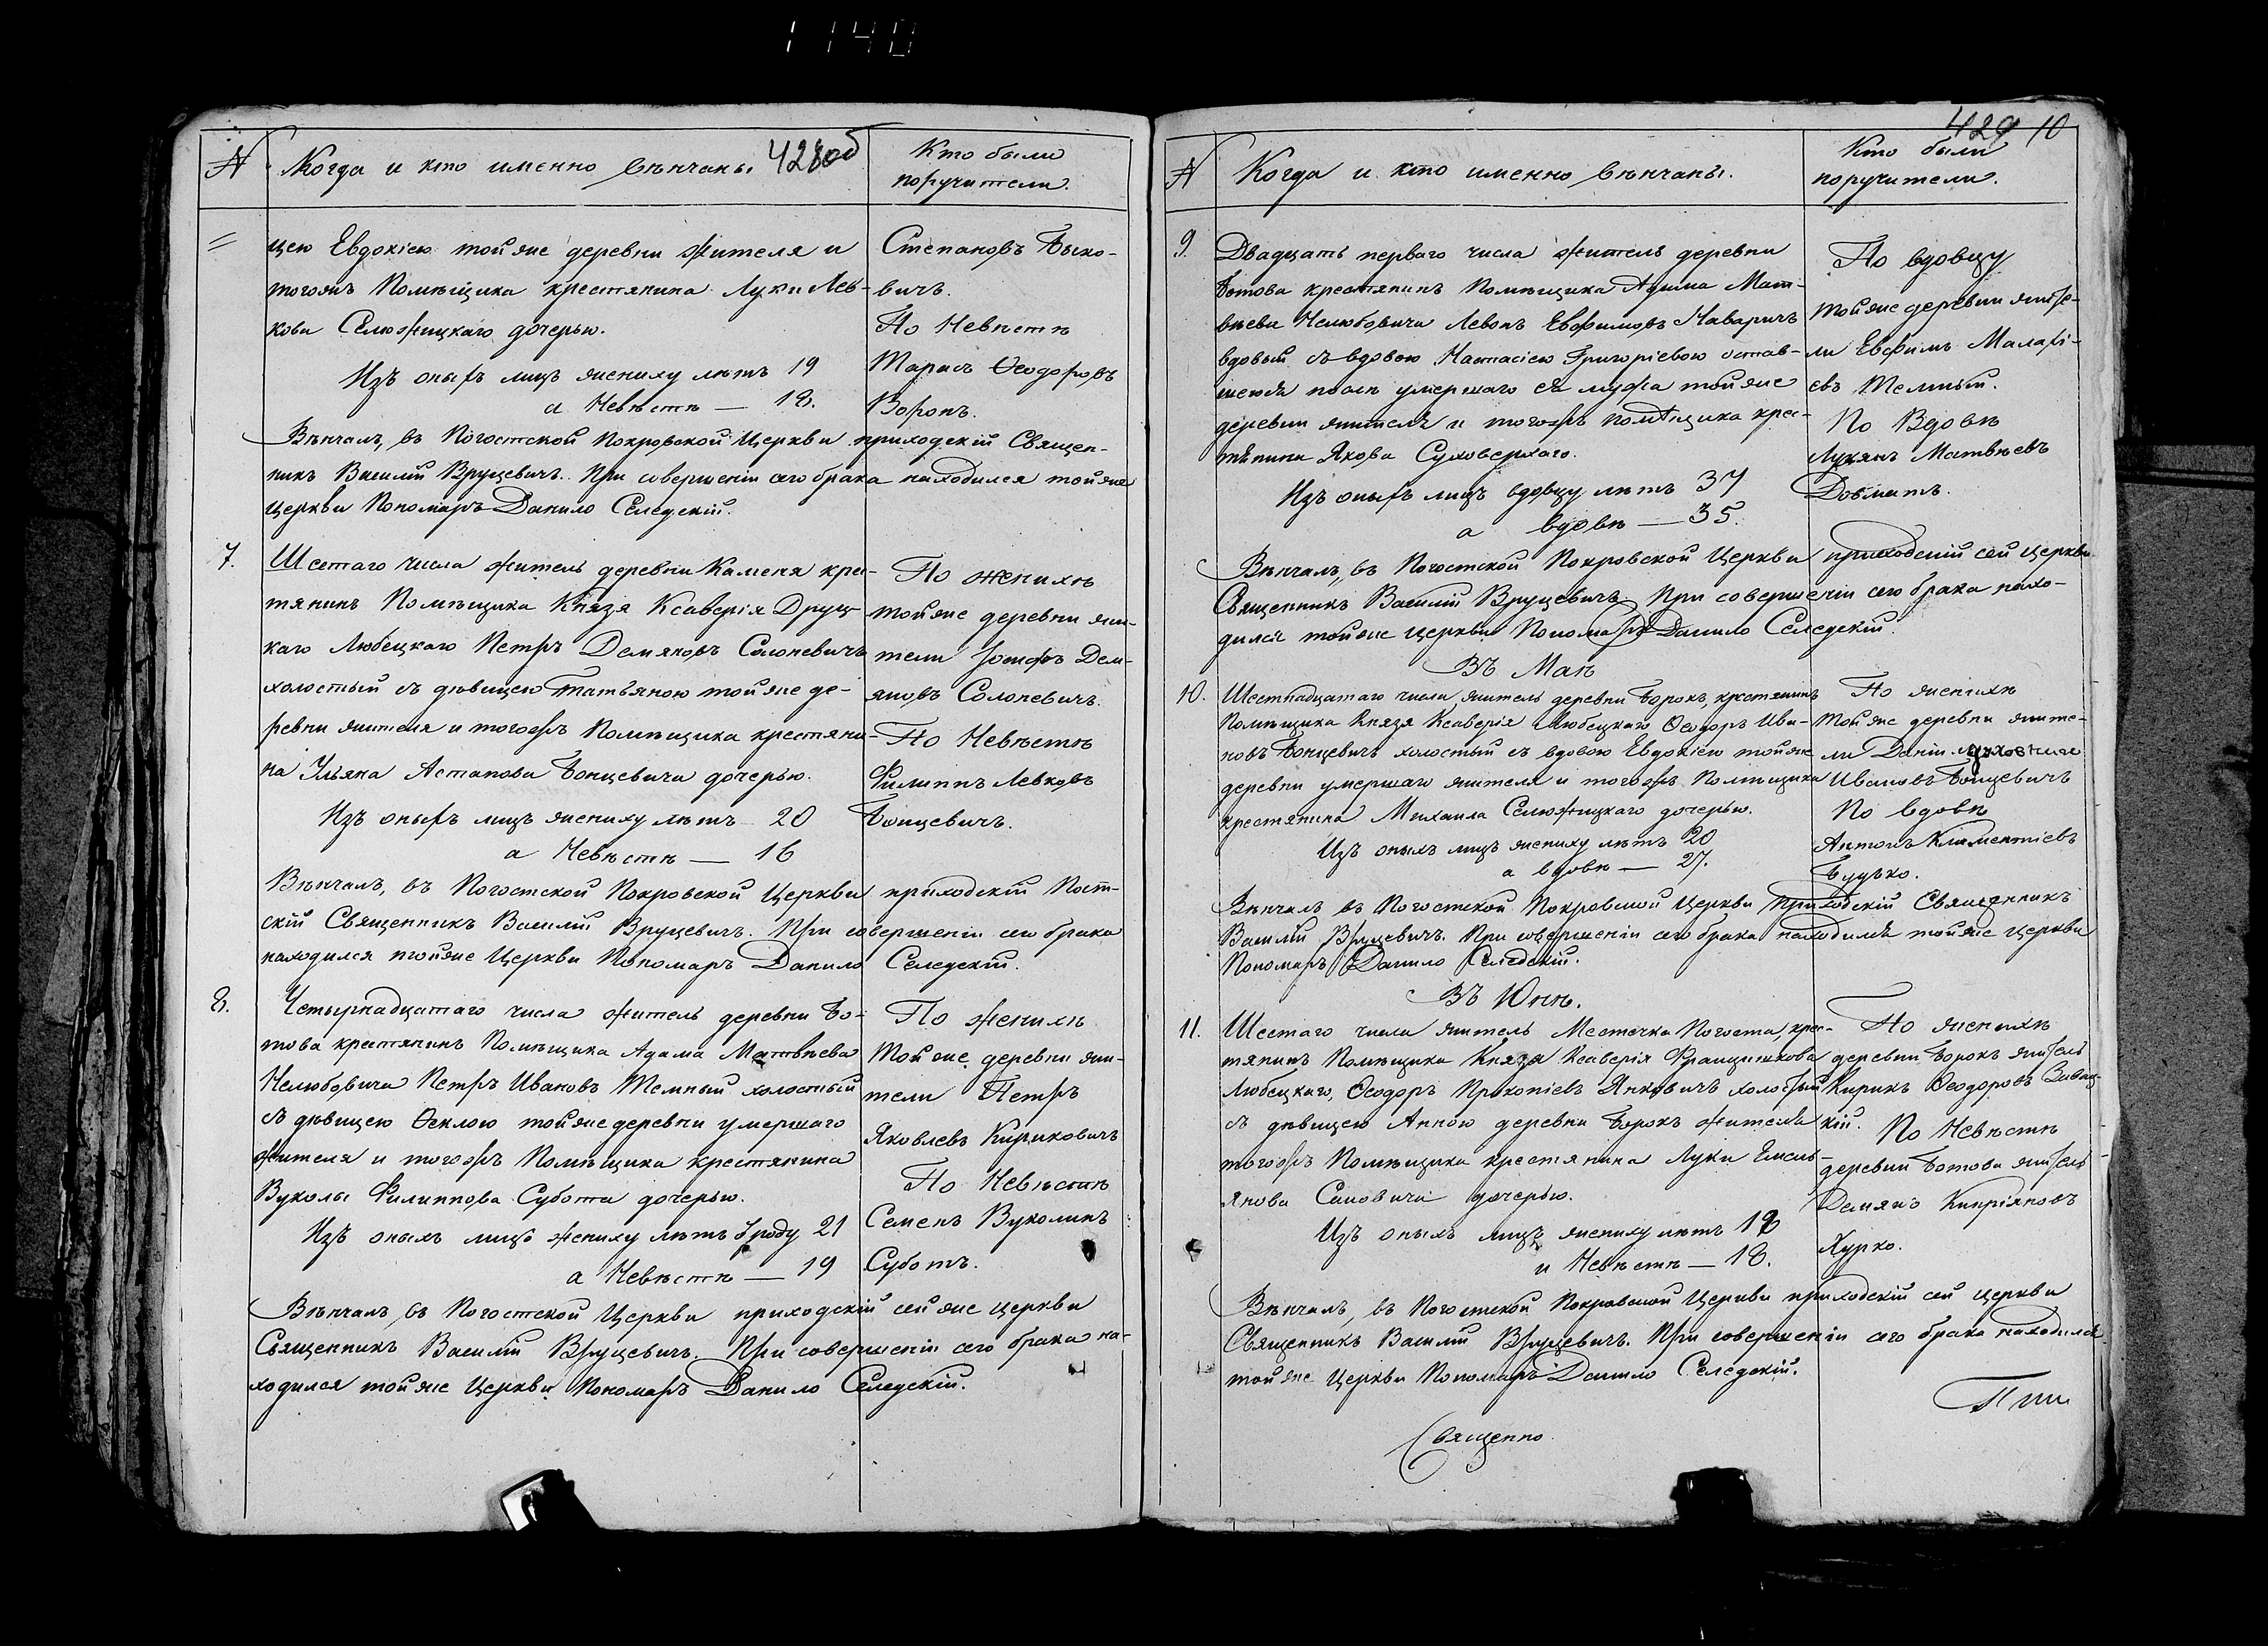 1140
N Когда и кто именно вѣнчаны 428об Кто были
поручители.
цею Евдокіею тойже деревни жителя и
тогожъ Помѣщика крестянина Луки Лев-
кова Селюжицкаго дочерью.
Изъ оныхъ лицъ жениху лѣтъ 19
а Невѣстѣ — 18.
Степановъ Быко-
вичъ.
По Невѣстѣ
Тарасъ Ѳеодоровъ
Воронъ.
Вѣнчалъ, въ Погостской Покровской Церкви приходскій Священ-
никъ Василій Вруцевичъ. При совершеніи сего брака находился тойже
Церкви Пономаръ Данило Селедскій.
7. Шестаго числа житель деревни Каменя крес-
тянинъ Помѣщика Князя Ксаверія Друц-
каго Любецкаго Петръ Демяновъ Солоневичъ
холостый съ дѣвицею Татьяною тойже де-
ревни жителя и тогожъ Помѣщика крестяни-
на Ульяна Астапова Бонцевича дочерью.
Изъ оныхъ лицъ жениху лѣтъ 20
а Невѣстѣ — 16
По женихѣ
тойже деревни жи-
тели Іосифъ Дем-
яновъ Солоневичъ.
По Невѣстѣ
Филиппъ Левковъ
Бонцевичъ.
Вѣнчалъ, въ Погостской Покровской Церкви приходскій Пост-
скій Священникъ Василій Вруцевичъ. При совершеніи сего брака
находился тойже Церкви Пономаръ Данило Селедскій.
8. Четырнадцатаго числа житель деревни Бо-
това крестянинъ Помѣщика Адама Матвѣева
Нелюбовича Петръ Ивановъ Темный холостый
съ дѣвицею Ѳеклою тойже деревни умершаго
жителя и тогожъ Помѣщика крестянина
Вуколы Филиппова Субота дочерью.
Изъ оныхъ лицъ жениху лѣтъ 21
а Невѣстѣ — 19
По женихѣ
Тойже деревни жи-
тели Петръ
Яковлевъ Кириковичъ
По Невѣстѣ
Семенъ Вуколинъ
Суботъ.
Вѣнчалъ, въ Погостской Церкви приходскій сей же церкви
Священникъ Василій Вруцевичъ. При совершеніи сего брака на-
ходился тойже Церкви Пономаръ Данило Селедскій.
429 10
N Когда и кто именно вѣнчаны. Кто были
поручители.
9. Двадцать перваго числа житель деревни
Ботова крестянинъ Помѣщика Адама Мат-
вѣева Нелюбовича Левонъ Евфимовъ Наваричъ
вдовый съ вдовою Настасіею Григоріевою остав-
шеюся послѣ умершаго ея мужа тойже
деревни жителя и тогожъ помѣщика крес-
тянина Якова Суховерхаго.
Изъ оныхъ лицъ вдовцу лѣтъ 37
а вдовѣ — 35.
По вдовцу
тойже деревни жите-
ли Евфимъ Малахі-
евъ Темный.
По Вдовѣ
Лукянъ Матвѣевъ
Довматъ.
Вѣнчалъ, въ Погостской Покровской Церкви приходскій сей Церкви
Священникъ Василій Вруцевичъ. При совершеніи сего брака нахо-
дился тойже церкви Пономаръ Данило Селедскій.
Въ Маѣ
10. Шестнадцатаго числа житель деревни Борокъ, крестянинъ
Помѣщика Князя Ксаверія Любецкаго Ѳеодоръ Ива-
новъ Бонцевичъ холостый съ вдовою Евдокіею тойже
деревни умершаго жителя и тогожъ Помѣщика
крестянина Михаила Селюжицкаго дочерью.
Изъ оныхъ лицъ жениху лѣтъ 20
а вдовѣ — 27.
По женихѣ
Тойже деревни жите-
ли
Ивановъ Бонцевичъ
По вдовѣ
Антонъ Климентіевъ
Будько.
Вѣнчалъ въ Погостской Покровской Церкви Приходскій Священникъ
Василій Вруцевичъ. При совершеніи сего брака находился тойже церкви
Пономаръ Данило Селедскій.
Въ Юнѣ.
11. Шестаго числа житель Местечка Погоста, крес-
тянинъ Помѣщика Князя Ксаверія Францишкова
Любецкаго, Ѳеодоръ Прокопіевъ Янковичъ холостый
съ дѣвицею Анною деревни Борокъ жителя
тогожъ Помѣщика крестянина Луки Емель-
янова Сановича дочерью.
Изъ оныхъ лицъ жениху лѣтъ 18
и Невѣстѣ — 18.
По женихѣ
деревни Борокъ житель
Кирикъ Ѳеодоровъ Завац-
кій. По Невѣстѣ
деревни Ботова житель
Демянъ Кипріяновъ
Хурко.
Вѣнчалъ, въ Погостской Покровской Церкви приходскій сей церкви
Священникъ Василій Вруцевичъ. При совершеніи сего брака находился
тойже Церкви Пономаръ Данило Селедскій.
Священно